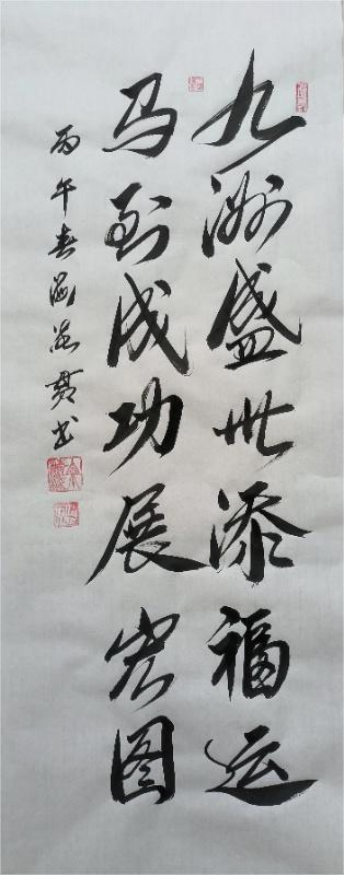 九洲盛世添福运
马到成功展宏图
丙午春月燕君书